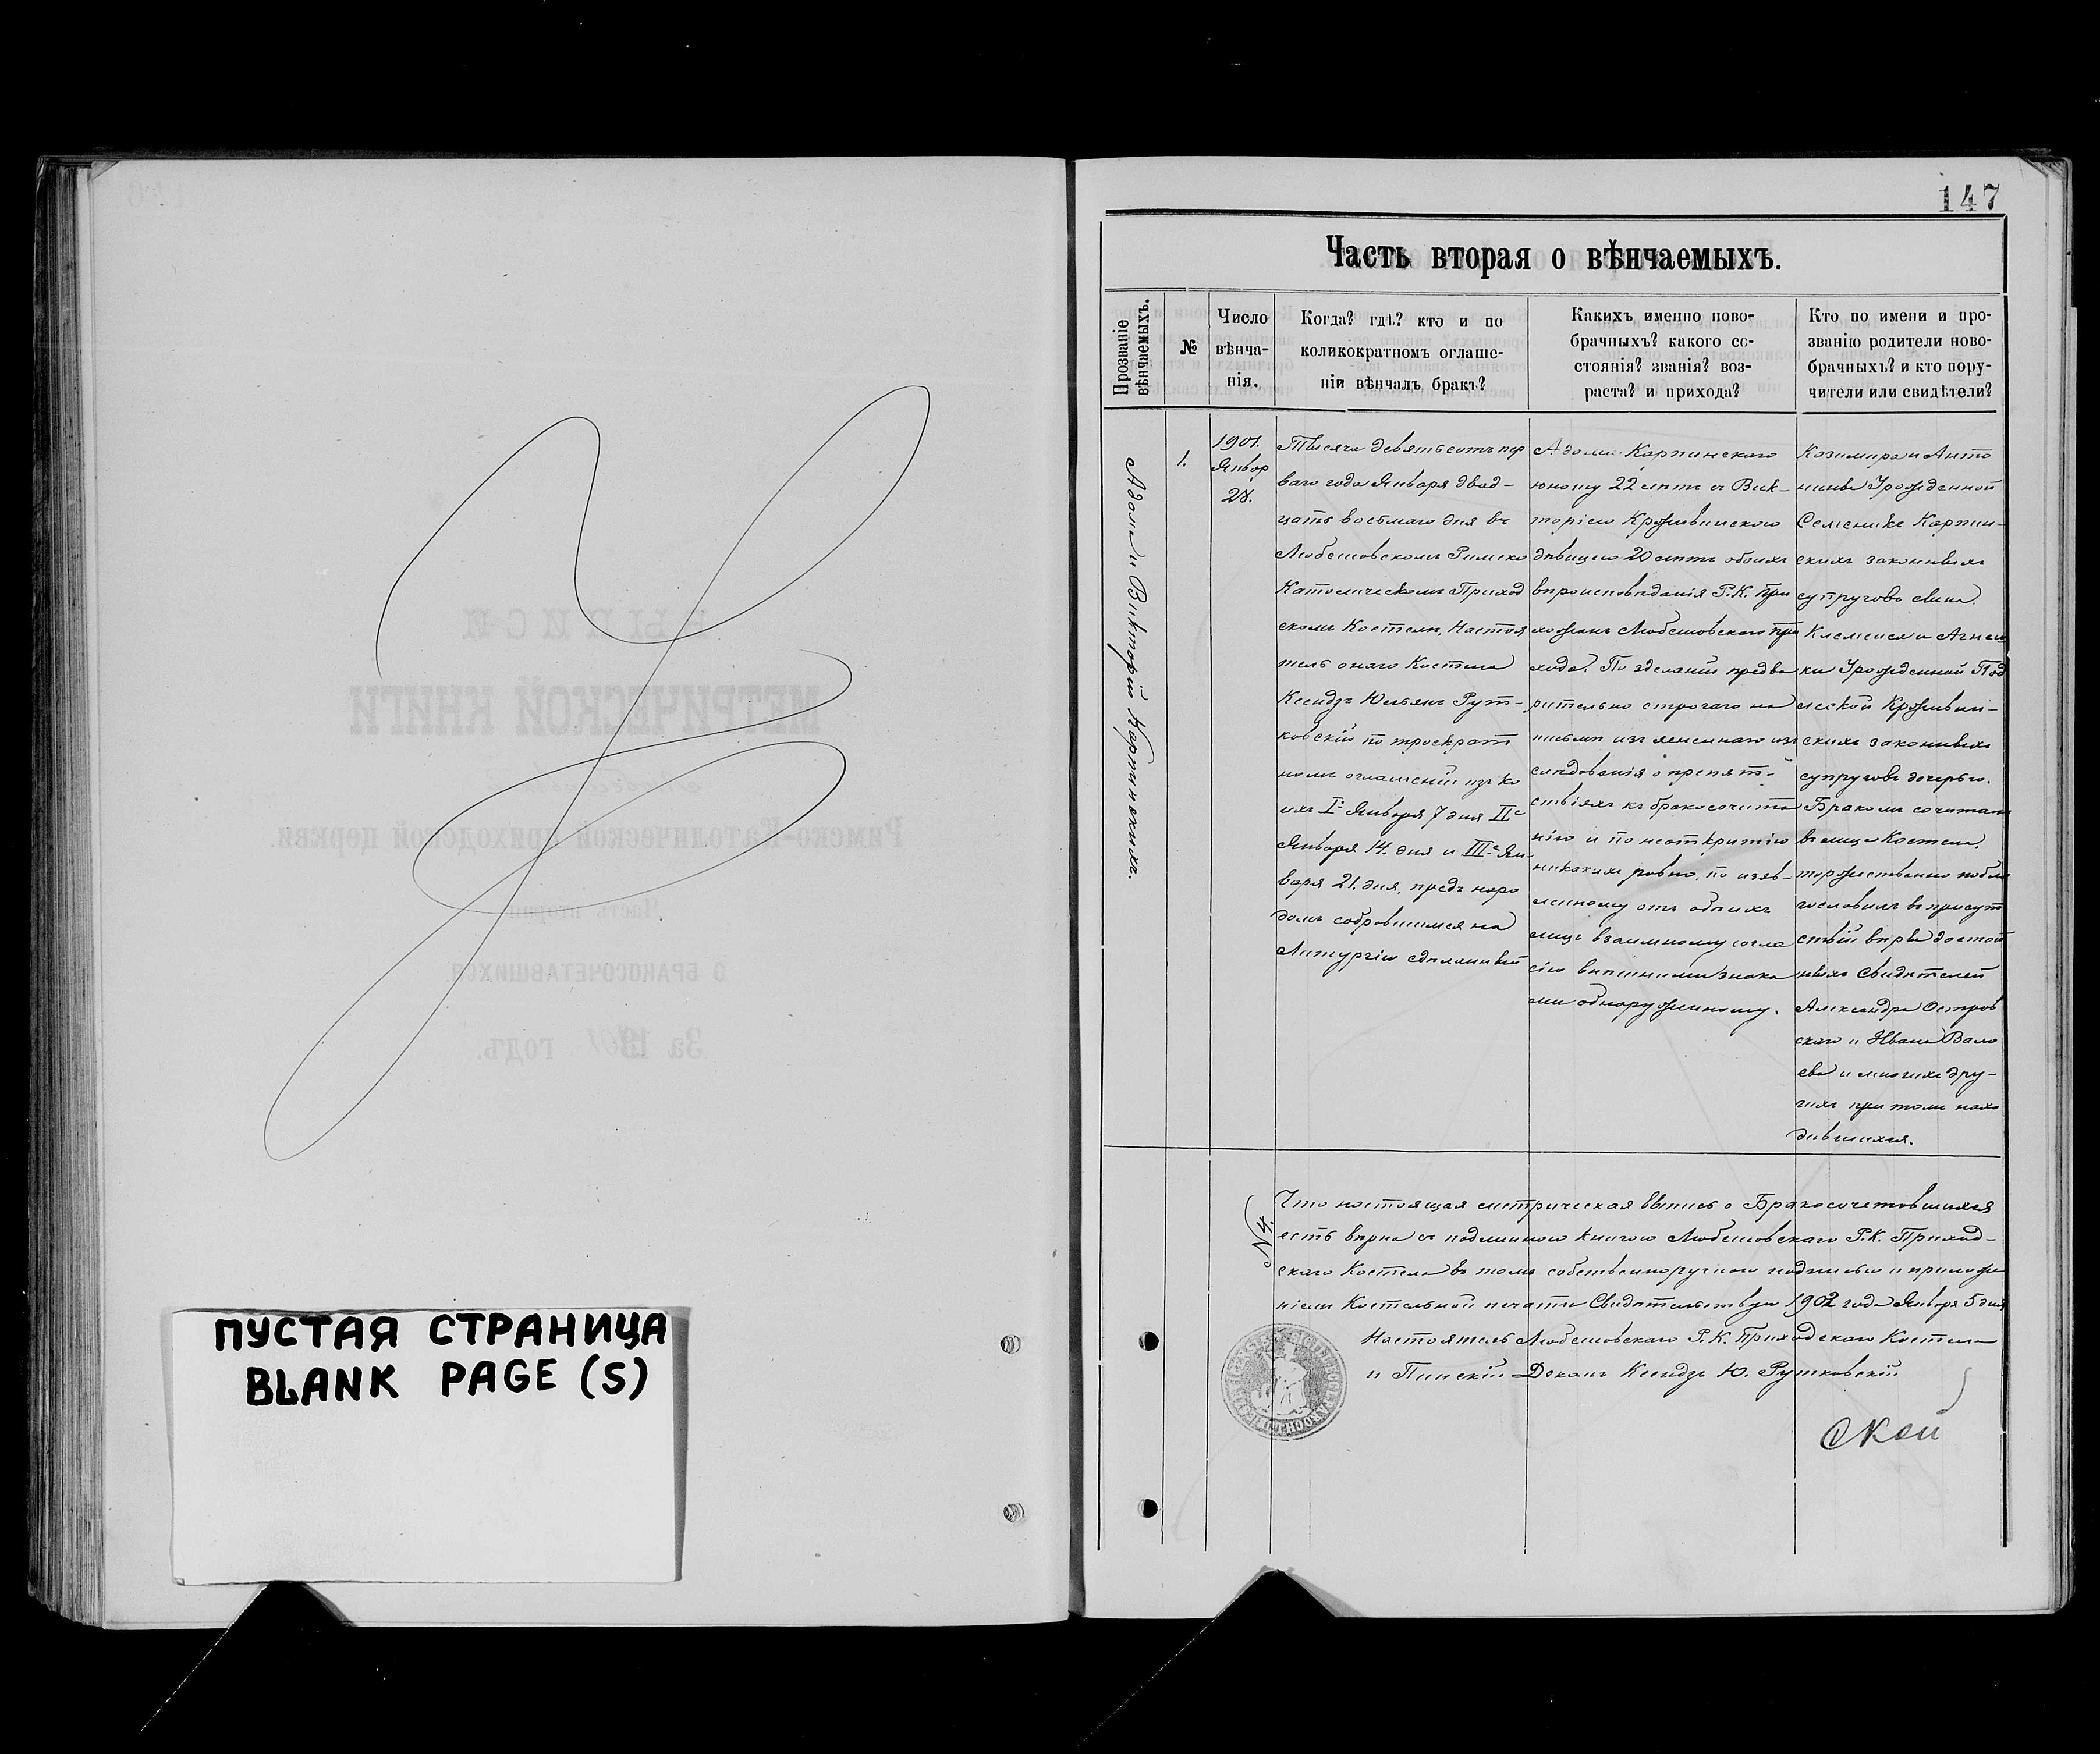 ПУСТАЯ СТРАНИЦА
BLANK PAGE (S)
147
Часть вторая о вѣнчаемыхъ.
Прозваніе
вѣнчаемыхъ.
№
Число
вѣнча-
нія.
Когда? гдѣ? кто и по
коликократномъ оглаше-
ніи вѣнчалъ бракъ?
Какихъ именно ново-
брачныхъ? какого со-
стоянія? званія? воз-
раста? и прихода?
Кто по имени и про-
званію родители ново-
брачныхъ? и кто пору-
чители или свидѣтели?
Адама и Викторіи Карпинскихъ.
1.
1901.
Январ
28.
Тысяча девятьсотъ пер
ваго года Января двад-
цать восьмаго дня въ
Любешовскомъ Римско
Католическомъ Приход
скомъ Костелѣ, Настоя
тель онаго Костела
Ксендзъ Юльянъ Рут-
ковскій по троекрат
номъ оглашеніи изъ ко
ихъ I-е Января 7 дня II-е
Января 14. дня и III-е Ян-
варя 21. дня, предъ наро
домъ собравшимся на
Литургію сдѣланный
Адама Карпинскаго
юношу 22 лѣтъ съ Вик-
торіею
дѣвицею 20 лѣтъ обоихъ
вѣроисповѣданія Р.К. При
хожанъ Любешовскаго при
хода. По зделаніи предва
рительно строгаго на
письмѣ из
слѣдованія о препят-
ствіяхъ къ бракосочита
нію и по неоткритію
никакихъ ровно, по изяв-
ленному отъ обоихъ
лицъ взаимному согла
сію внѣшними знака
ми обнаруженному.
Казимира и Анто
нины Урожденной
Карпин-
скихъ законныхъ
супруговъ сына.
и Агнеш
ки Урожденной Под
лѣской
скихъ законныхъ
супруговъ дочерью.
Бракомъ сочиталъ
въ лице Костела.
торжественно побла
гословилъ въ присут
ствіи вѣры достой
ныхъ Свидѣтелей
Александра Остров
скаго и Ивана
ева и многихъ дру-
гихъ при томъ нахо
дившихся.
№ 4.
Что настоящая метрическая выпись о Бракосочетовшихся
есть вѣрна съ подлинною книгою Любешовскаго Р.К. Приход-
скаго Костела въ томъ собственноручною подписью и приложе
ніемъ Костельной печати Свидѣтельствую 1902 года Января 5 дня
Настоятель Любешовскаго Р.К. Приходскаго Костела
и Пинскій Деканъ Ксендзъ Ю. Рутковскій